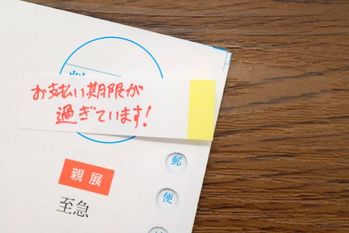 お支払い期限が
過ぎています!
親展
至急
郵
便